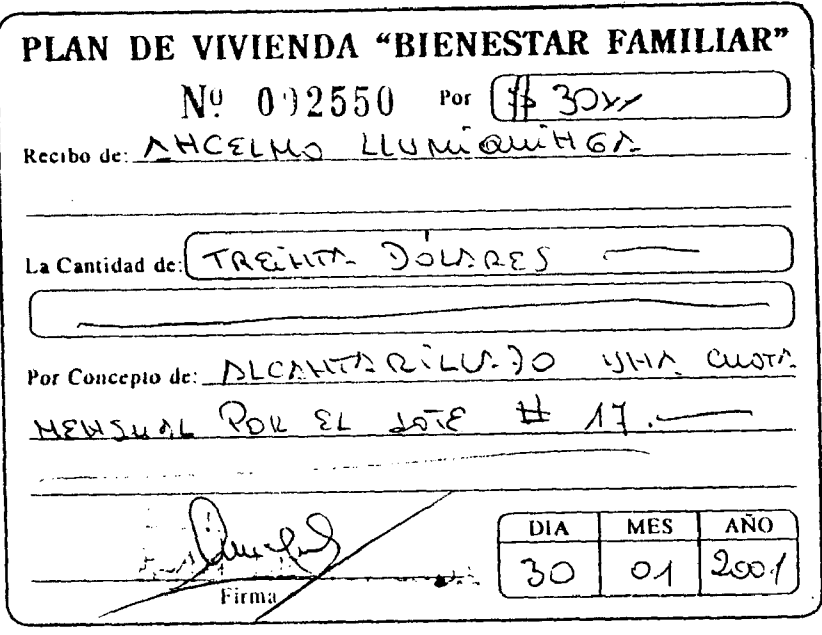 PLAN DE VIVIENDA "BIENESTAR FAMILIAR"
Nº 002550 Por $ 30
Recibo de: ANCELMO LLUMIQUINGA
La Cantidad de: TREINTA DÓLARES
Por Concepto de: ALCANTARILLADO UNA CUOTA
MENSUAL POR EL LOTE # 17.
Firma
DIA MES AÑO
30 01 2001